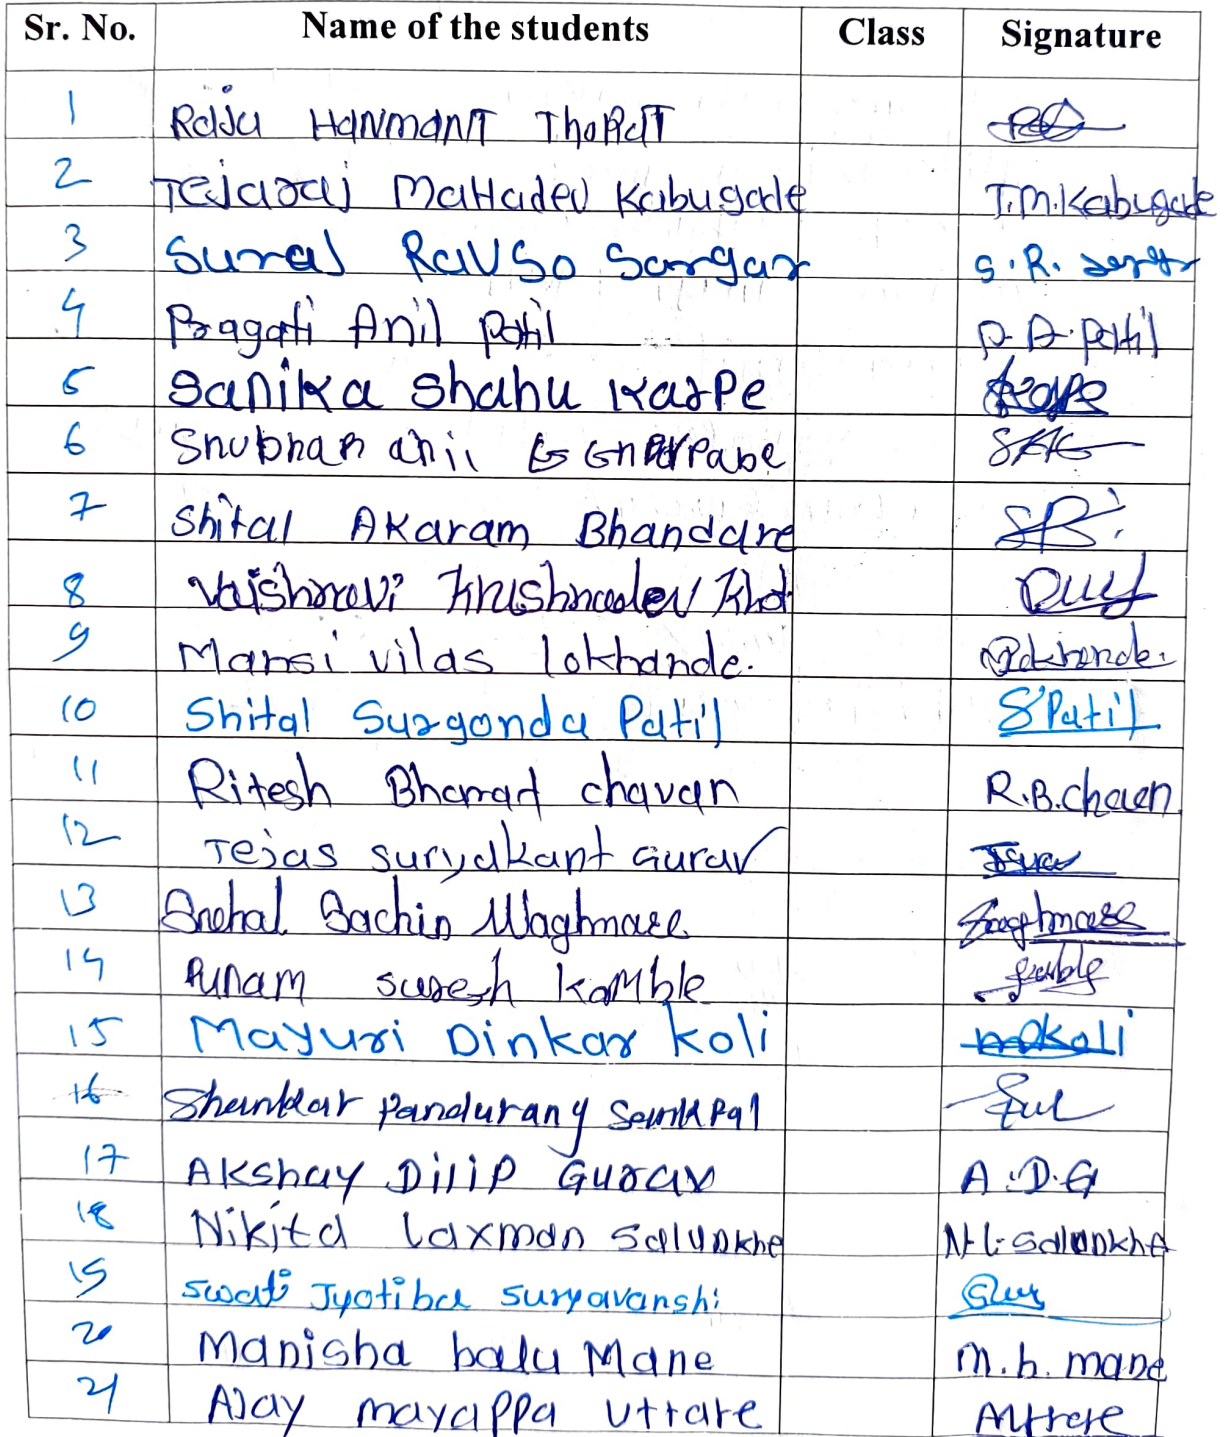 Sr. No. Name of the students Class Signature
1 Raju Hanmant Thorat
2 Tejaraj Mahadev Kabugade T.M.Kabugade
3 Suraj Ravso Sargar S.R.
4 Pragati Anil Patil P. A. Patil
5 Sanika Shahu Karpe
6 Shubham anil
7 Shital Akaram Bhandare
8 Vaishnavi Krushnadev Khot
9 Mansi vilas lokhande. Lokhande.
10 Shital Surgonda Patil S Patil
11 Ritesh Bharat chavan R.B.chaen
12 Tejas suryakant Gurav
13 Snehal Sachin Waghmare
14 Punam suresh kamble
15 Mayuri Dinkar koli koli
16 Shankar Pandurang
17 Akshay Dilip Gurav A.D.G
18 Nikita laxman salunkhe N.L.salunkhe
19 swati Jyotiba suryavanshi
20 Manisha balu Mane m.b.mane
21 Ajay mayappa uttare